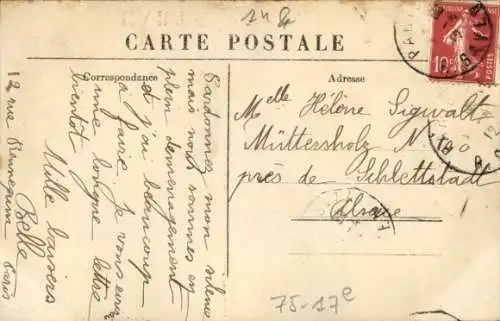 14 &
CARTE POSTALE
Correspondance
Adresse
Pardonnez mon silence
mais nous sommes en
plein demenagement
et j'ai beaucoup
à faire. je vous envoie
une longue lettre
bientôt
Mille baisers
Belle
12 rue Bennequin Paris
Melle Hélène Sigwalt
Müttersholz N 
près de Schlettstadt
Alsace
10c
POSTES
75-17e